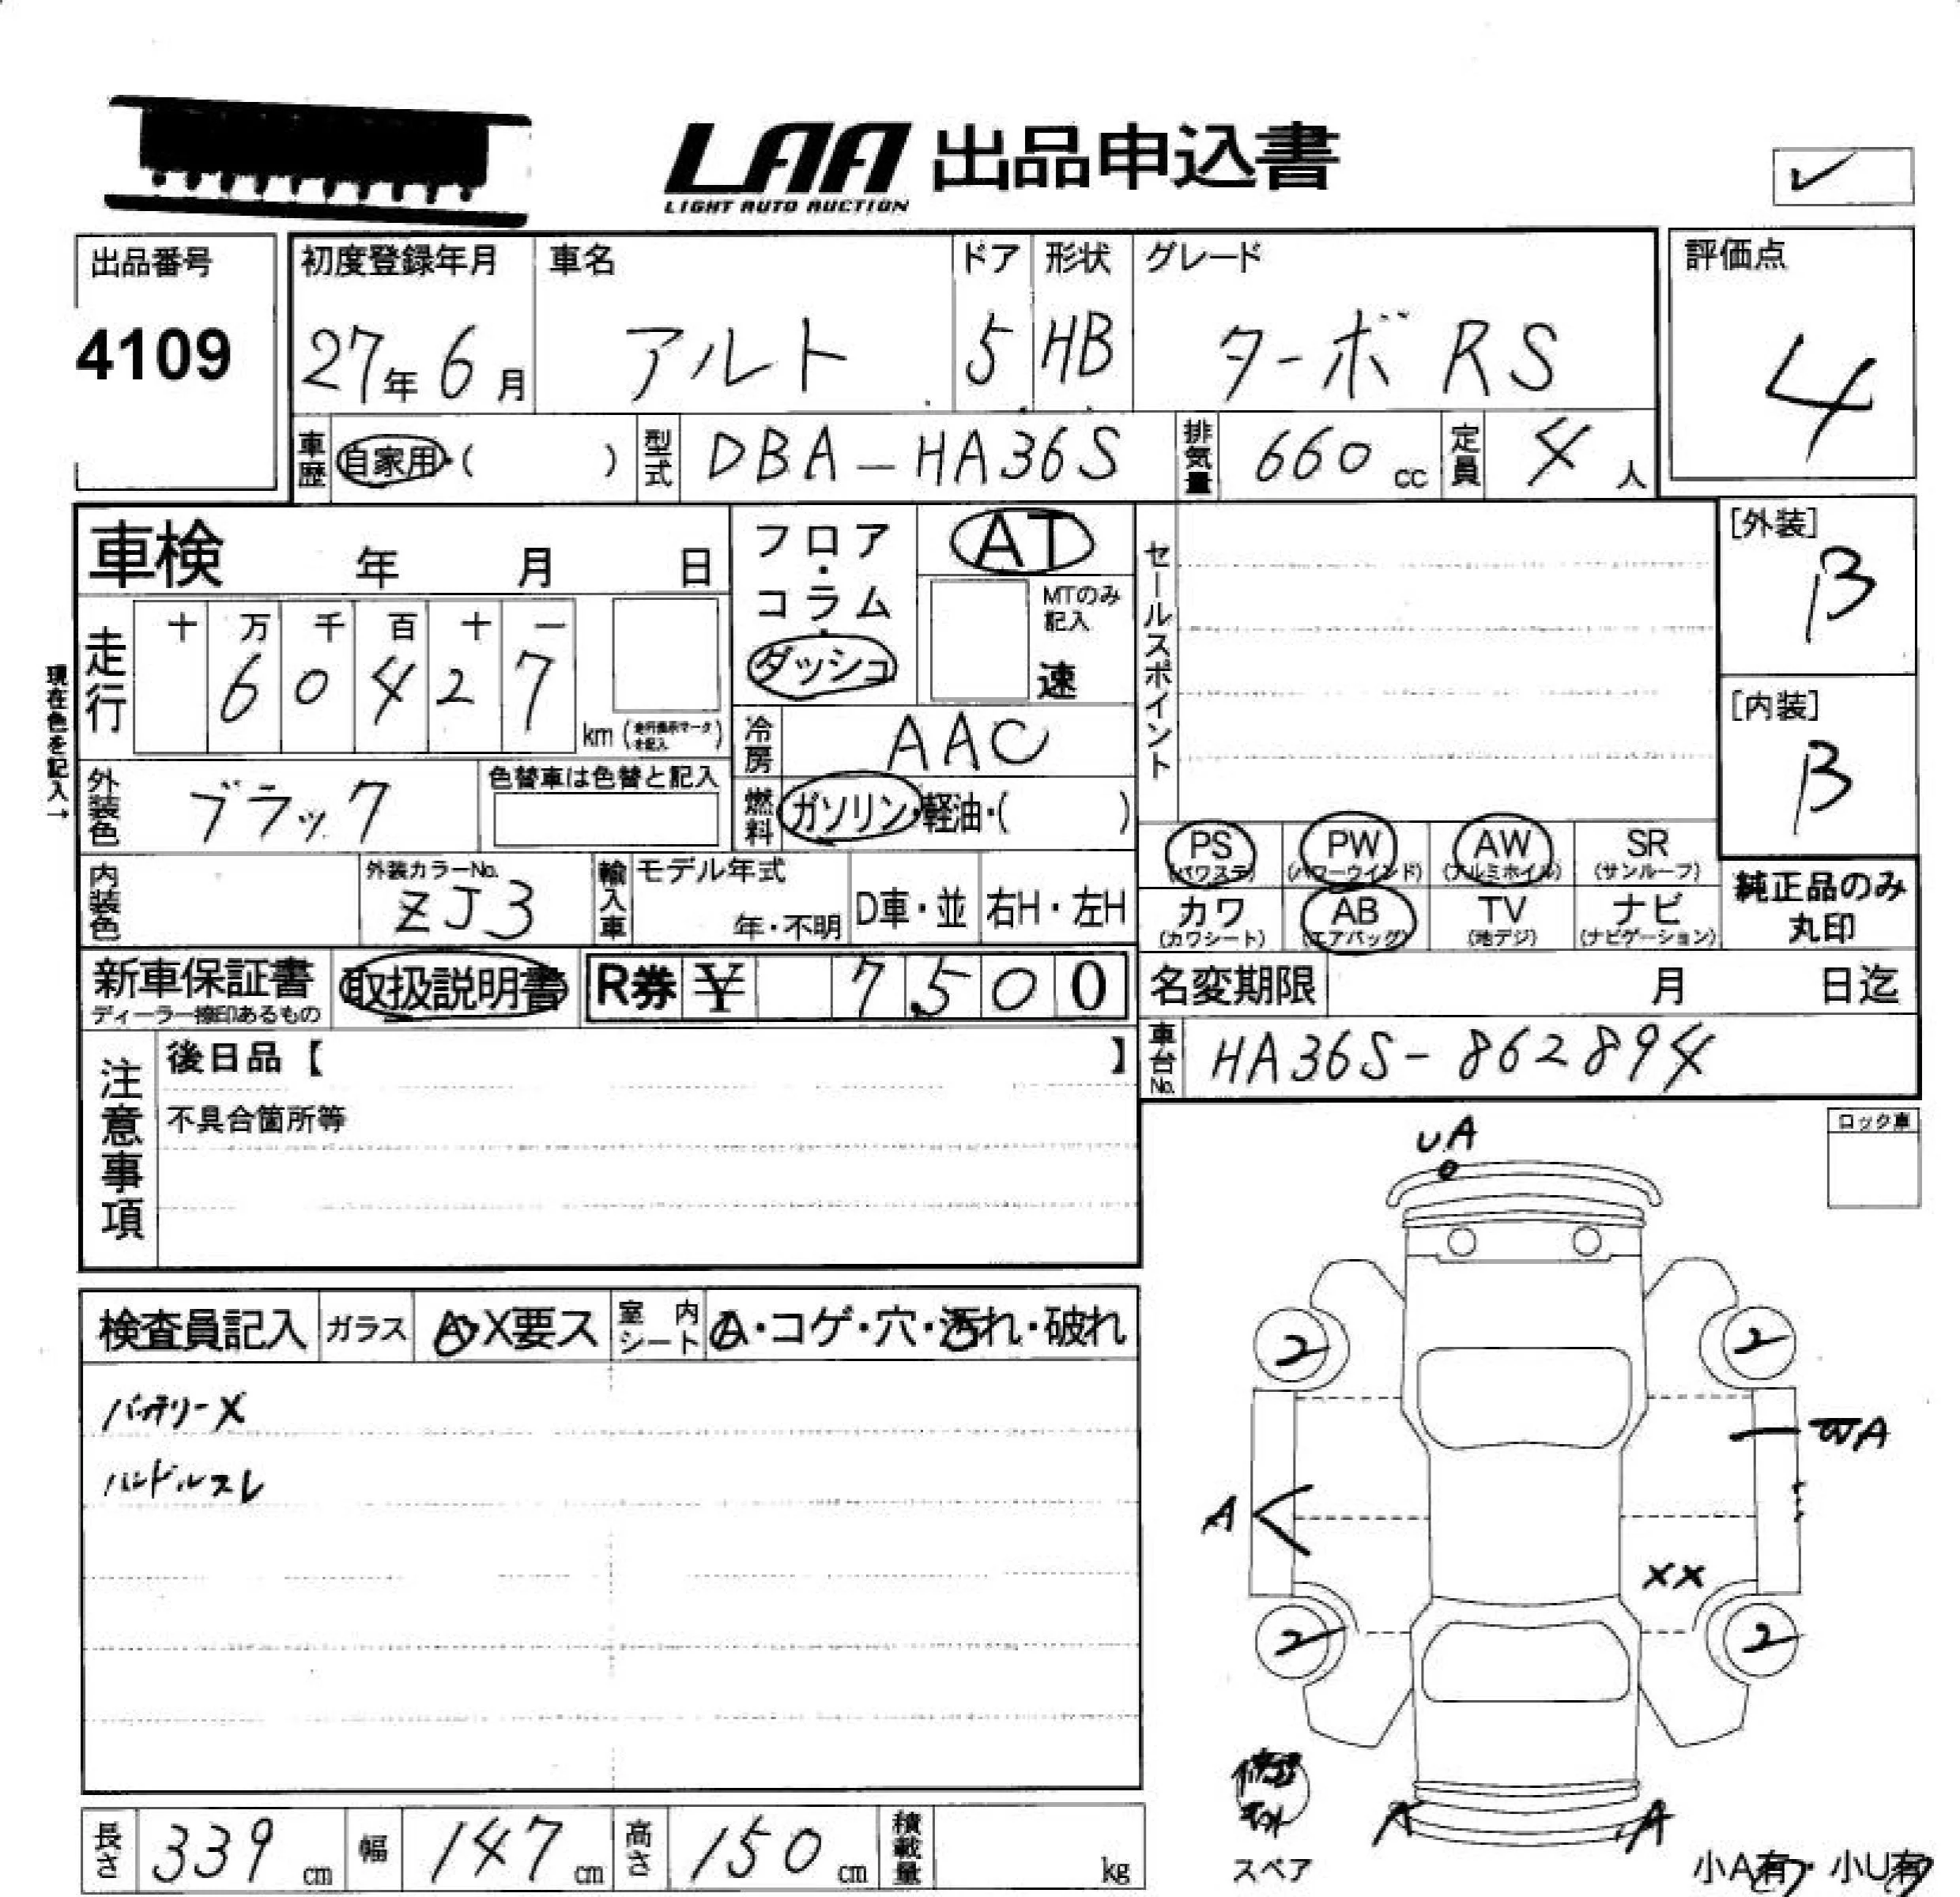 LAA 出品申込書
LIGHT AUTO AUCTION
✓
出品番号 初度登録年月 車名 ドア 形状 グレード 評価点
4109 27年 6月 アルト 5 HB ターボ RS 4
車歴 自家用・( ) 型式 DBA-HA36S 排気量 660 cc 定員 4 人
車検 年 月 日 フロア・コラム・ダッシュ AT セールスポイント [外装] B
MTのみ記入 速
現在色を記入→
走行 十 万 千 百 十 一
6 0 4 2 7 km
[内装] B
冷房 AAC
外装色 ブラック 色替車は色替と記入 燃料 ガソリン・軽油・( )
PS (パワステ) PW (パワーウインド) AW (アルミホイル) SR (サンルーフ)
内装色 外装カラーNo. ZJ3 輸入車 モデル年式 年・不明 D車・並 右H・左H
カワ (カワシート) AB (エアバッグ) TV (地デジ) ナビ (ナビゲーション)
純正品のみ丸印
新車保証書 ディーラー捺印あるもの 取扱説明書 R券 ¥ 7,500 名変期限 月 日迄
注意事項 後日品【 】 車台No. HA36S-862894
不具合箇所等
ロック車
UA
検査員記入 ガラス A・X要ス 室内シート A・コゲ・穴・汚れ・破れ
2 2
バッテリーX
WA
ハンドルスレ
A
XX
2 2
A A
スペア
小A有・小U有
長さ 339 cm 幅 147 cm 高さ 150 cm 積載量 kg